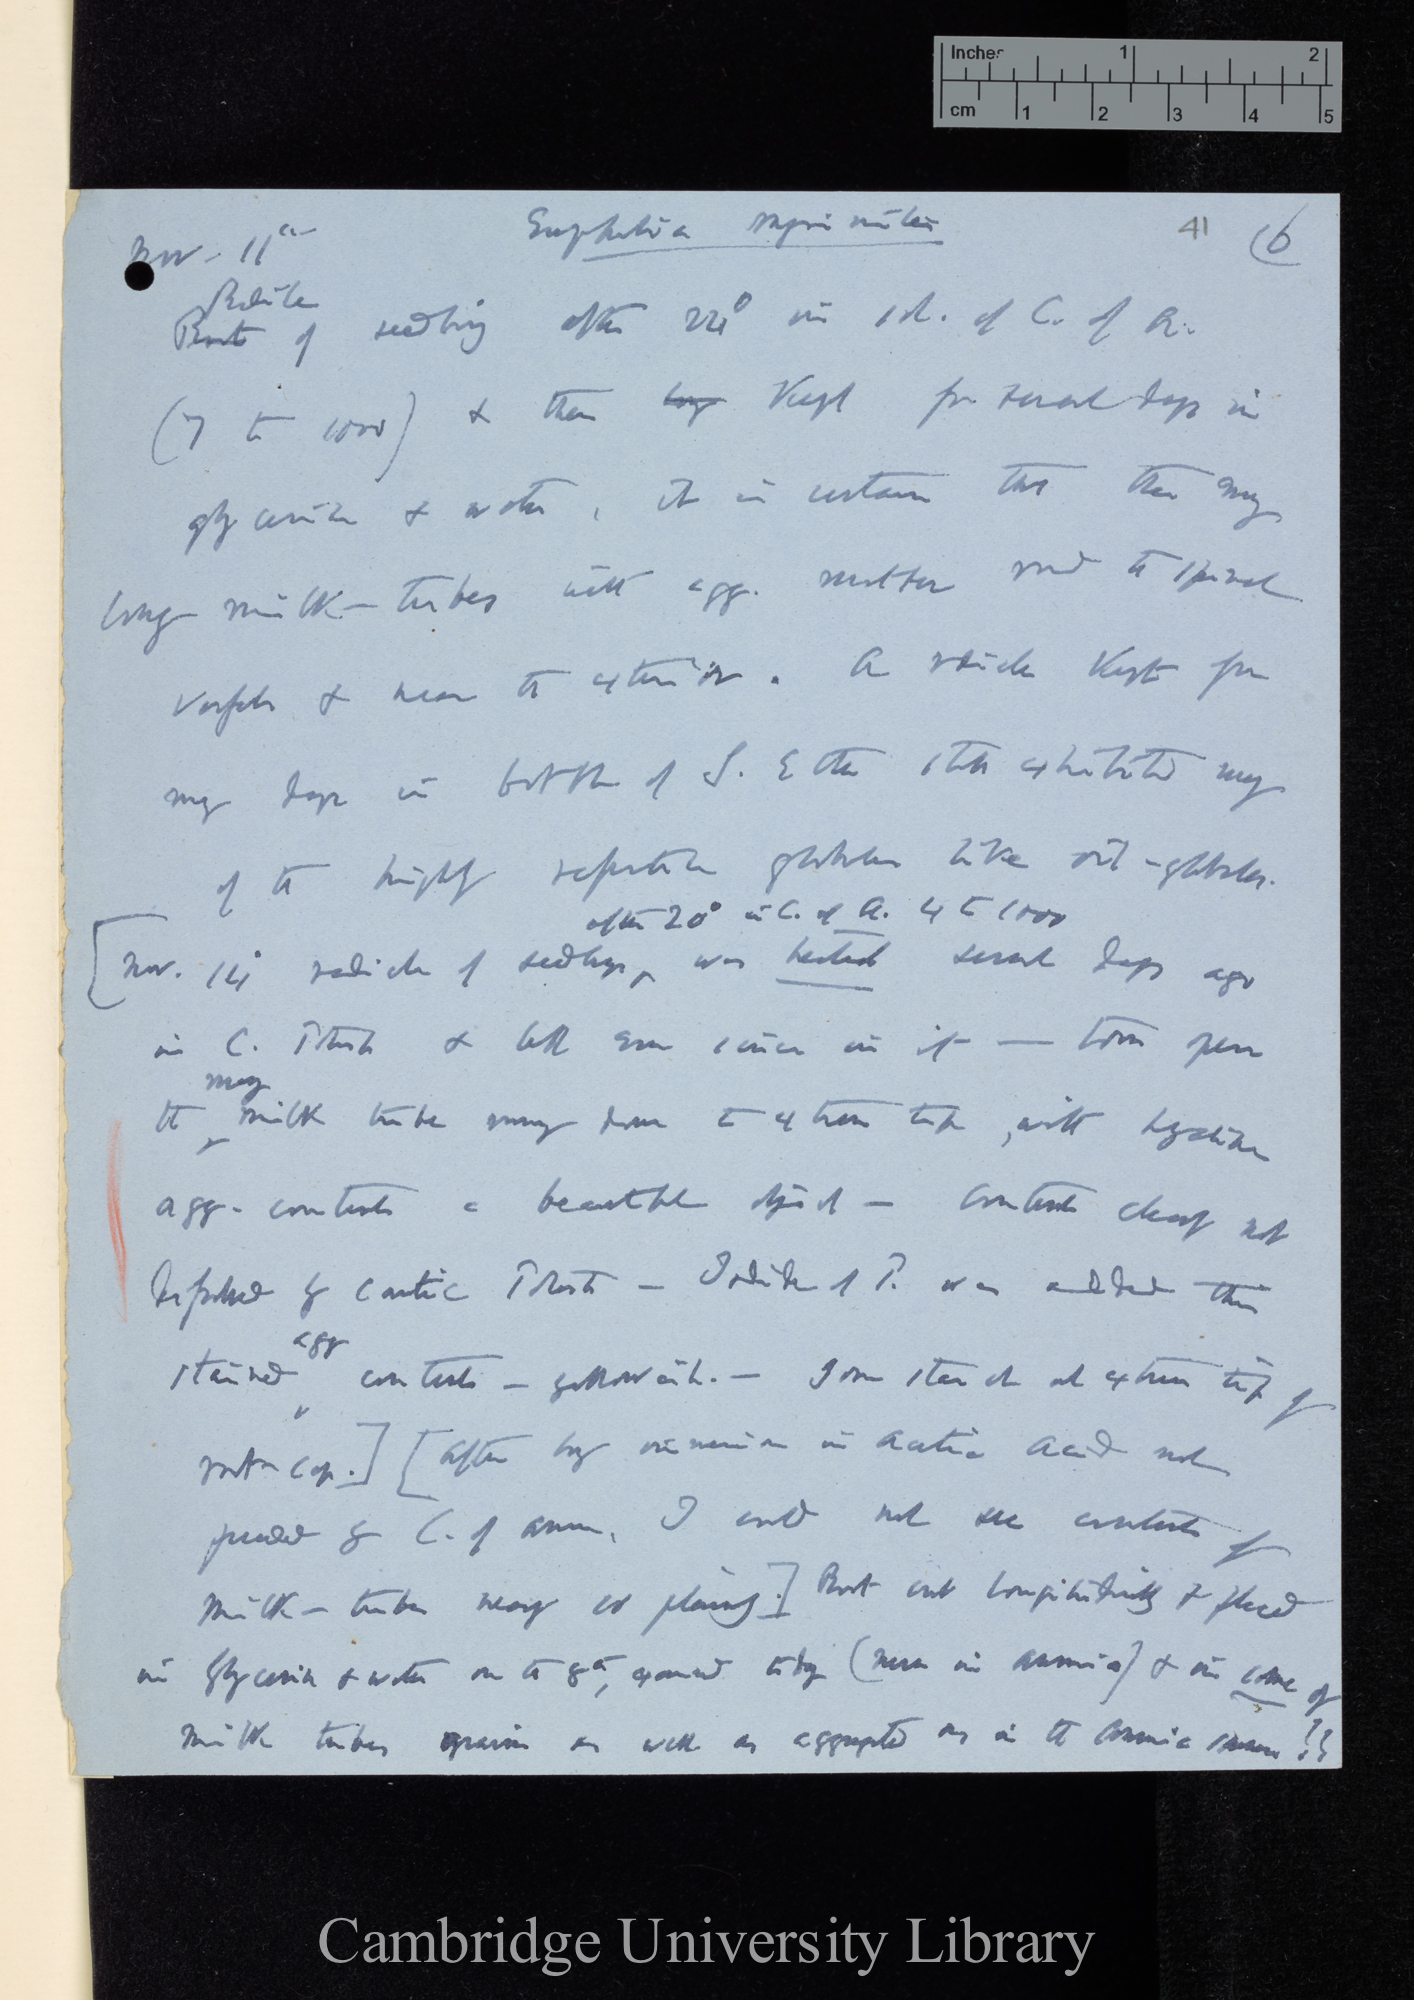 Inches 1 2
cm 1 2 3 4 5
41 (6
Nov. 11th Euphorbia myrsinites
Radicle
Root of seedling after 24° in sol. of C. of A.
(7 to 1000) & then long Kept for several days in
glycerine & water, it is certain that the many
long milk-tubes with agg. matter round the spiral
vessels & near the exterior. A radicle Kept for
many days in bottle of S. Ether still exhibited many
of the highly refractive globules like oil-globules.
after 20° in C. of A. 4 to 1000
[Nov. 14 radicle of seedlings, was heated several days ago
in C. Potash & left ever since in it — torn open
many
the milk tube running down to extreme tip, with hyaline
agg. contents a beautiful object — Contents clearly not
dissolved by Caustic Potash — Iodide of P. was added this
agg
stained contents — yellowish. — Some starch at extreme tip of
root-cap.] [After long immersion in Acetic Acid not
preceded by C. of Amm. I could not see contents of
Milk-tubes nearly so plainly.] Root cut longitudinally & placed
in Glycerine & water on the 8th, examined today (never in ammonia) & in some of
milk tubes grains as well as aggregated as in the Ammonia !!
Cambridge University Library